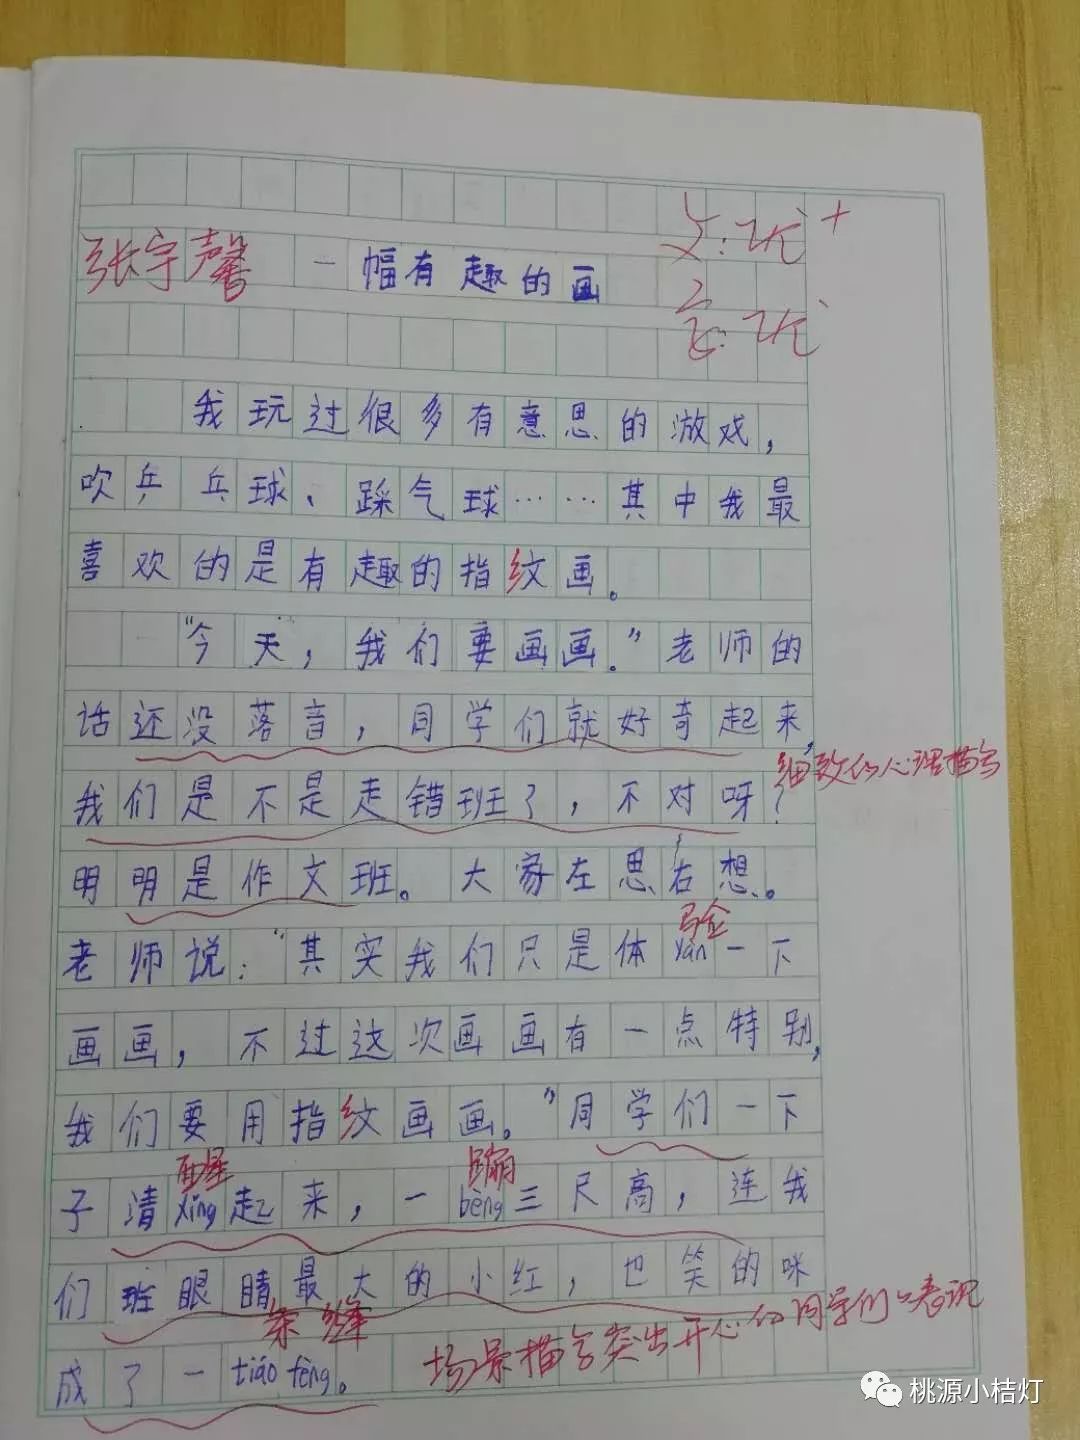 文:优+
张宇馨 一幅有趣的画
言:优
我玩过很多有意思的游戏,
吹乒乓球、踩气球……其中我最
喜欢的是有趣的指纹画。
"今天,我们要画画。"老师的
话还没落音,同学们就好奇起来,
细致的心理描写
我们是不是走错班了,不对呀?
明明是作文班。大家左思右想。
验
老师说:"其实我们只是体yàn一下
画画,不过这次画画有一点特别,
我们要用指纹画画。"同学们一下
醒 蹦
子清xǐng起来,一bèng三尺高,连我
们班眼睛最大的小红,也笑的咪
条缝
场景描写突出开心的同学们的表现
成了一tiáo fèng。
桃源小桔灯